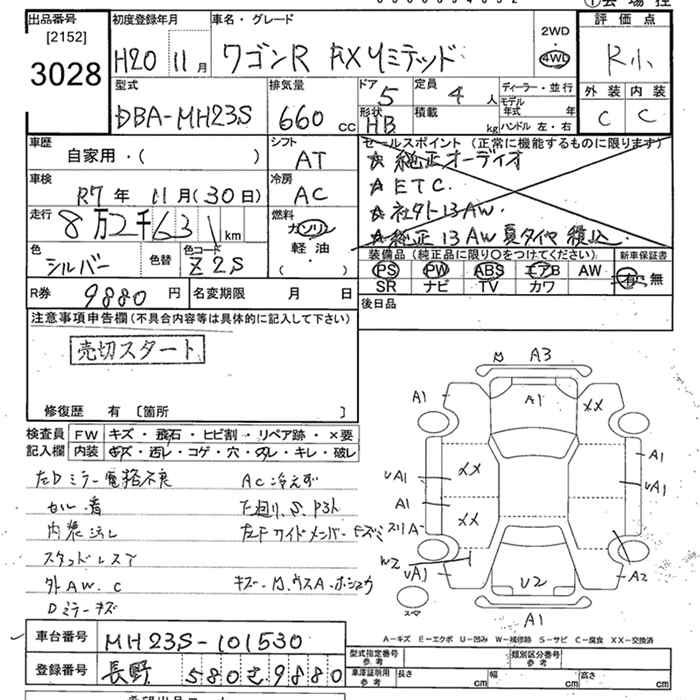 出品番号
[2152]
3028
初度登録年月
H20 11月
車名・グレード
ワゴンR FXリミテッド
2WD
4WD
評価点
R小
外装 内装
C C
型式
DBA-MH23S
排気量
660 cc
ドア 5
定員 4 人
形状 HB
積載 kg
ディーラー・並行
モデル年式 年
ハンドル 左・右
車歴
自家用・( )
シフト
AT
車検
R7年 11月(30日)
冷房
AC
走行
8万2千631 km
燃料
ガソリン
軽・油
( ・ )
色
シルバー
色替
色コード
Z2S
セールスポイント (正常に機能するものに限ります)
☆ 純正オーディオ
☆ ETC.
☆ 社外13AW.
☆ 純正13AW夏タイヤ積込
装備品 (純正品に限り○をつけてください)
PS PW ABS エアB AW
SR ナビ TV カワ
新車保証書
有・無
後日品
R券 9880 円
名変期限 月 日
注意事項申告欄 (不具合内容等は具体的に記入して下さい)
売切スタート
修復歴 有 〔箇所 〕
検査員記入欄
FW キズ・飛石・ヒビ割・リペア跡・×要
内装 キズ・汚レ・コゲ・穴・スレ・キレ・破レ
左Dミラー電格不良 AC冷えず
内装汚レ
スタッドレス
外AW.C
Dミラーキズ
A3
A1
A1
XX
A1
UA1
XX
UA1
A1
XX
A1
W2
UA1
A2
U2
A1
スペア
A-キズ E-エクボ U-凹み W-補修跡 S-サビ C-腐食 XX-交換済
車台番号 MH23S-101530
登録番号 長野 580 さ 9880
型式指定番号 参考
類別区分番号 参考
車庫証明用 参考
長さ cm
幅 cm
高さ cm